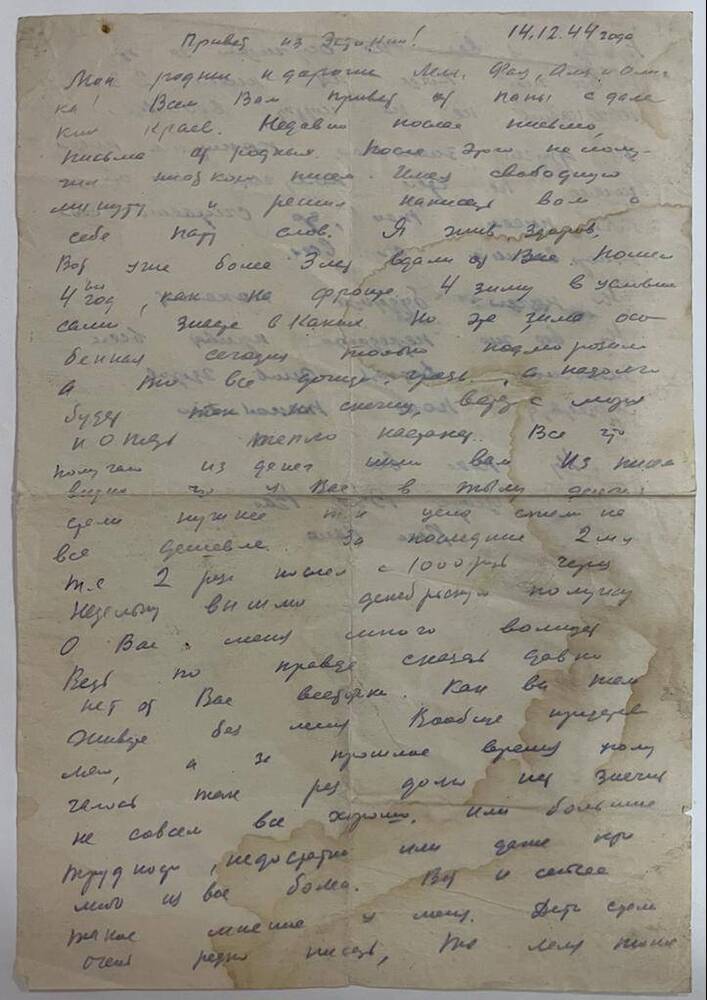 Привет из Эстонии! 14.12.44 года
Мои родные и дорогие Леля, Фая, Аля и Али-
ка! Всем Вам привет от папы с дале
ких краев. Недавно послал письмо,
письма от родных. После этого не полу-
чил писем. Имея свободную
минуту и решил написать вам о
себе пару слов. Я жив здоров.
Вот уже более 3 лет вдали от Вас. Пошел
4ый год, как на фронте. 4 зиму в условиях
сами знаете в каких. Но эта зима осо-
бенная сегодня только подморозило
а то все дожди, грязь, а надолго
будет
и опять тепло настанет. Все что
получаю из денег шлю вам. Из писем
видно что у Вас в тылу деньги
стали нужнее т.к. цена стали не
все дешевле. За последние 2 м-ца
т.е. 2 раза послал с 1000 руб через
недельку вышлю декабрьскую получку
О Вас меня много волнует
Ведь по правде сказать давно
нет от Вас весточки. Как вы там
живете без меня Вообще
а за прошлое время
раз долго нет значит
не совсем все хорошо. Или большие
трудности, недостатки или даже
кто из вас болен. Вот и сейчас
такое мнение у меня. Дети стали
очень редко писать, то Леля